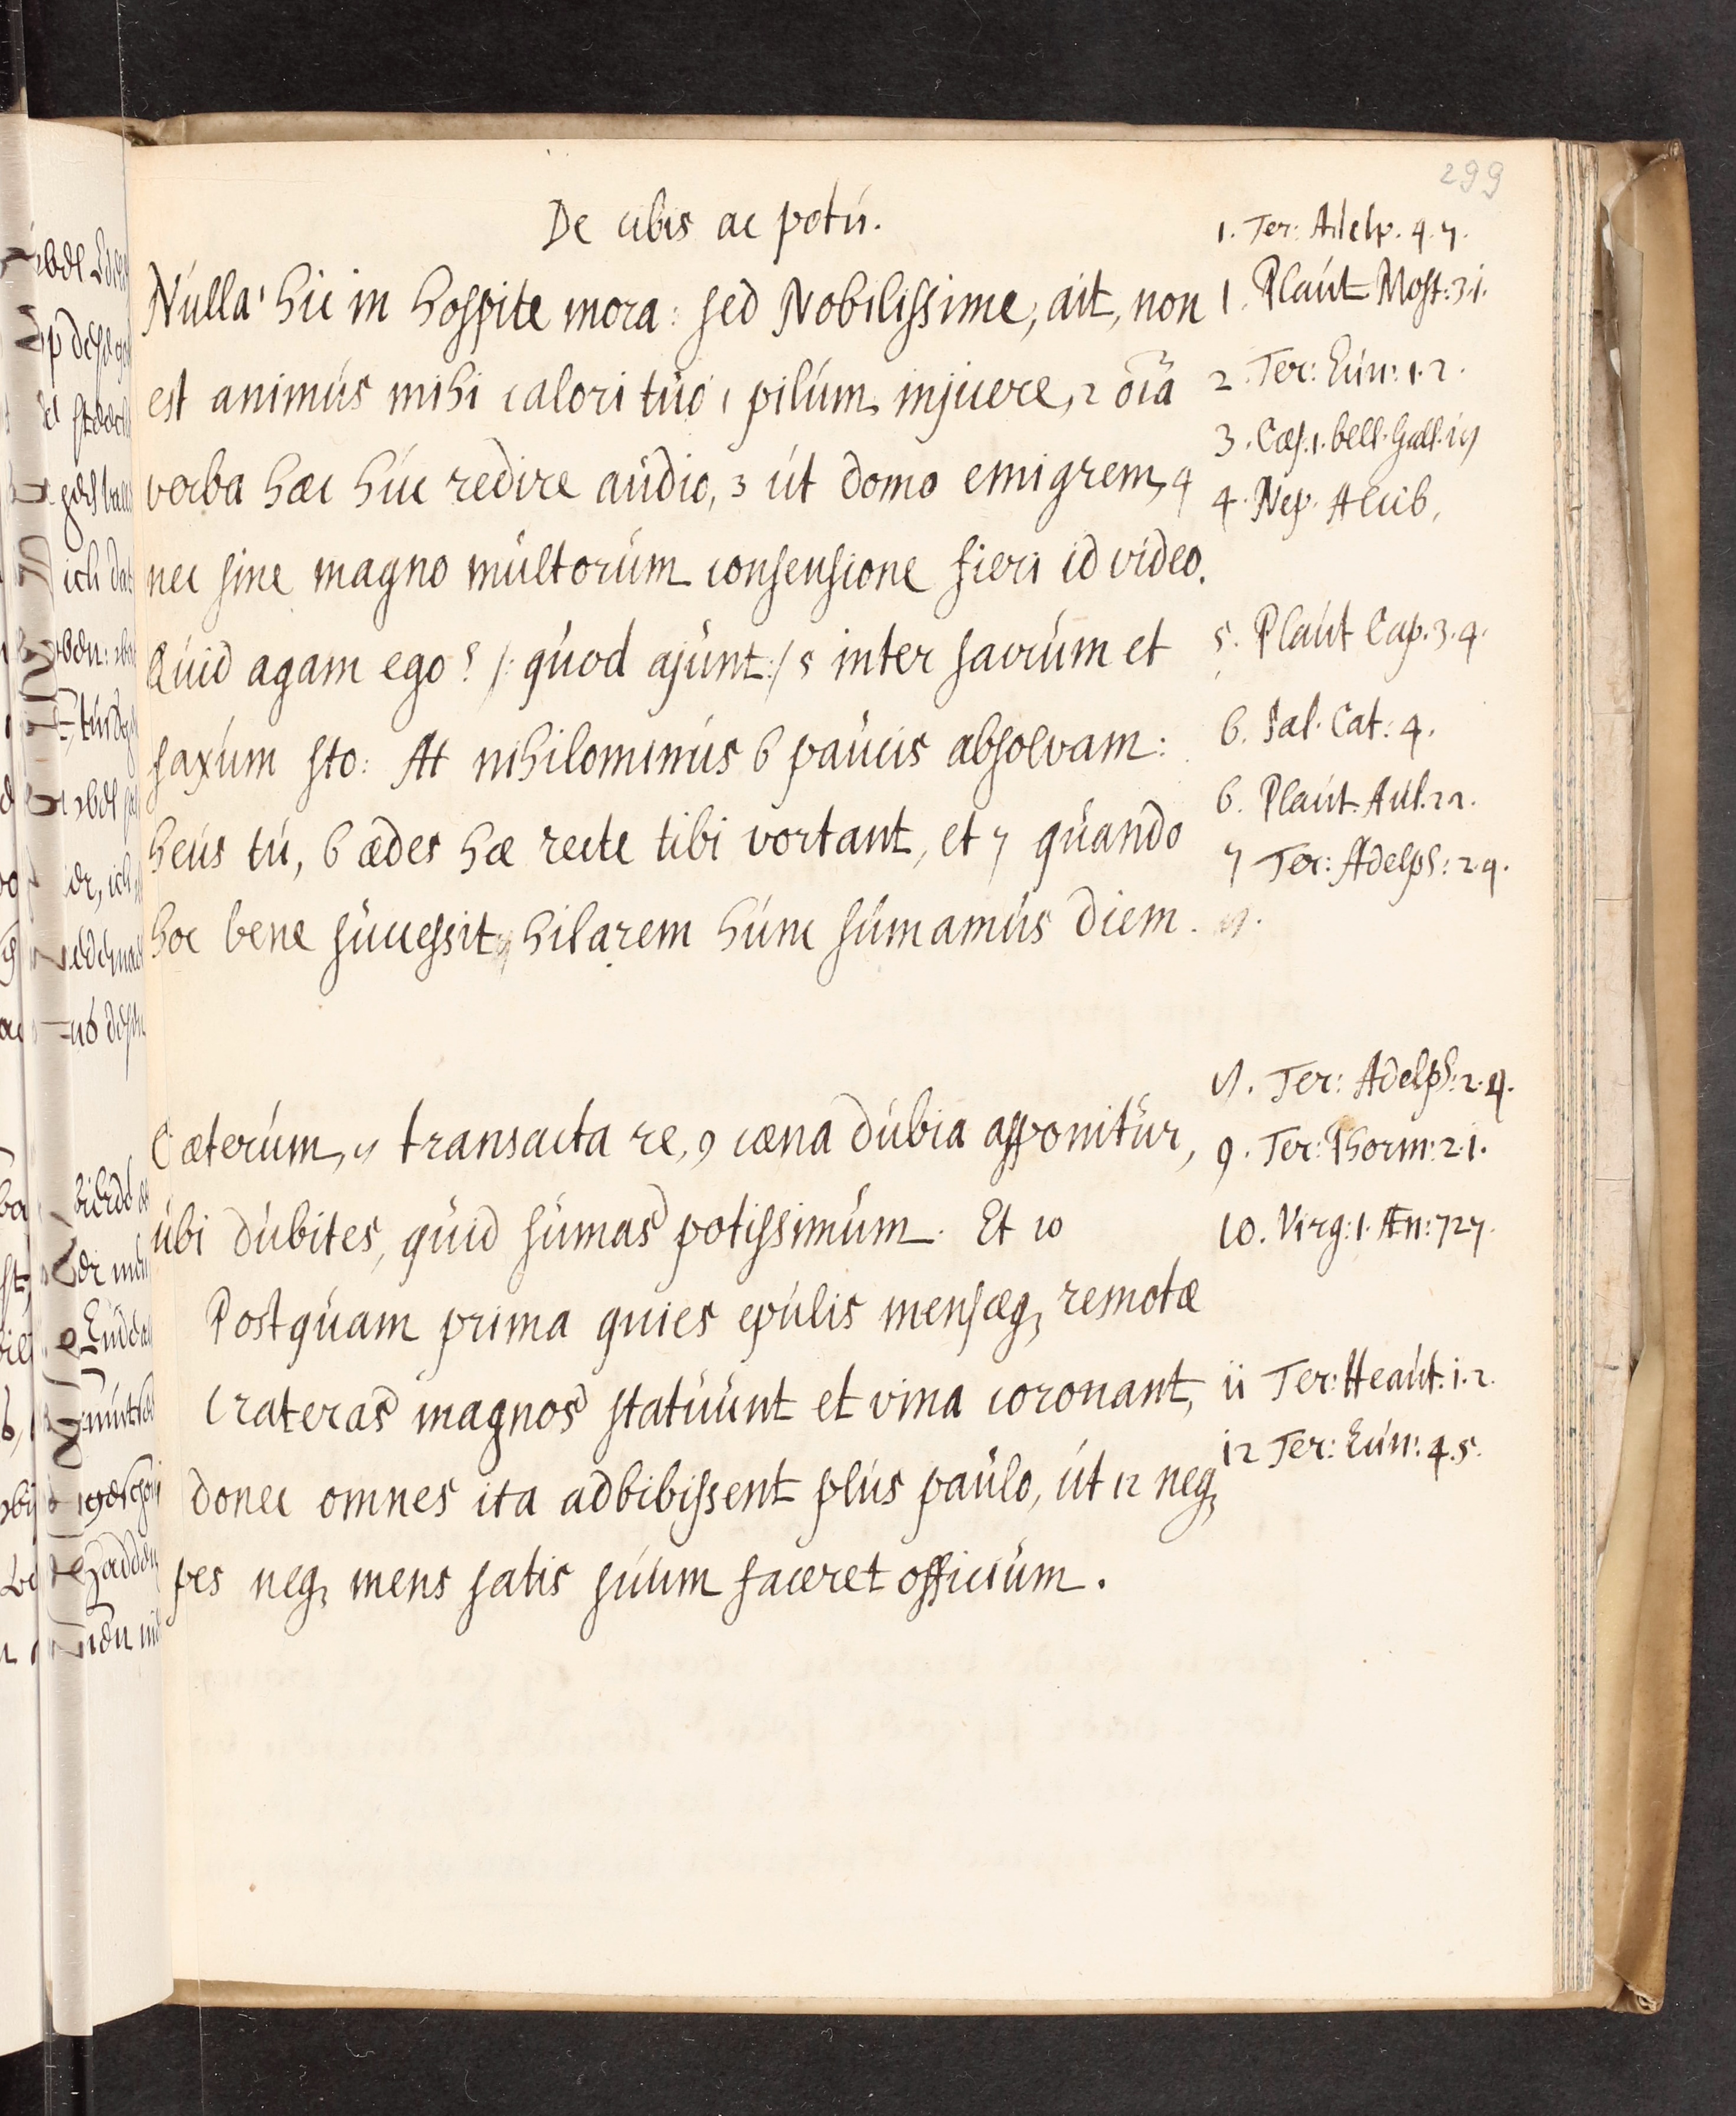 299
De cibis ac potú.
Núlla ¹ hic in hospite mora: sed Nobilissime, ait, non
est animús mihi calori túo 1 pilúm injicere, 2 oĩa
verba hæc húc redire aúdio, 3 út domo emigrem, 4
nec sine magno múltorúm consensione fieri id video.
Qúid agam ego? /: qúod ajúnt :/ 5 inter sacrúm et
saxúm sto: At nihilominús 6 paúcis absolvam:
heús tú, 6 ædes hæ recte tibi vortant, et 7 qúando
hoc bene súccessit, hilarem húnc súmamús diem.
Cæterúm, 8 transacta re, 9 cæna dúbia apponitúr,
úbi dúbites, qúid súmas potissimúm. Et 10
Postqúam prima quies epúlis mensæq, remotæ
Crateras magnos statúúnt et vina coronant,
donec omnes ita adbibissent plús paúlo, út 12 neq,
pes neq, mens satis súúm faceret officiúm.
1. Ter: Adelp. 4.7.
1. Plaút Most: 3.1.
2. Ter: Eún: 1.2.
3. Cæs. 1. bell. Gall.
4. Nep. Alcib.
5. Plaút Cap. 3.4.
6. Sal. Cat: 4.
6. Plaút Aúl. 2.2.
7 Ter: Adelph: 2.4.
8.
8. Ter: Adelph: 2.4.
9. Ter: Phorm: 2.1.
10. Virg: 1. Æn: 727.
11 Ter: Heaút: 1.2.
12 Ter: Eún: 4.5.